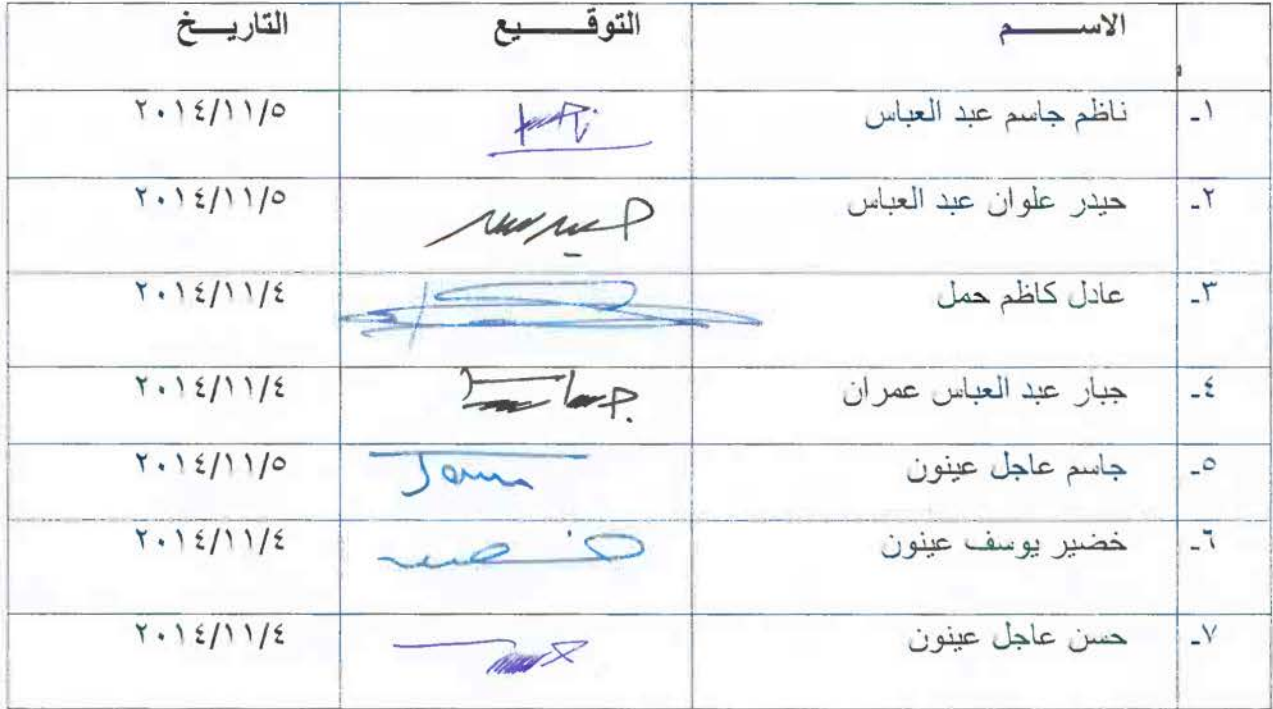 الاســـــم التوقـــــيع التاريـــخ
١ـ ناظم جاسم عبد العباس ٢٠١٤/١١/٥
٢ـ حيدر علوان عبد العباس ٢٠١٤/١١/٥
٣ـ عادل كاظم حمل ٢٠١٤/١١/٤
٤ـ جبار عبد العباس عمران ٢٠١٤/١١/٤
٥ـ جاسم عاجل عينون ٢٠١٤/١١/٥
٦ـ خضير يوسف عينون ٢٠١٤/١١/٤
٧ـ حسن عاجل عينون ٢٠١٤/١١/٤